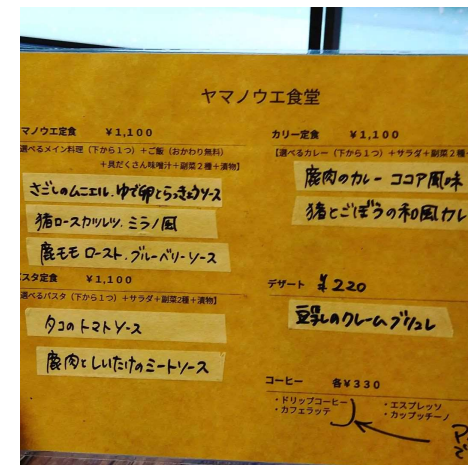 ヤマノウエ食堂
マノウエ定食 ¥1,100
選べるメイン料理(下から1つ)+ご飯(おかわり無料)
+具だくさん味噌汁+副菜2種+漬物】
さごしのムニエル. ゆで卵とらっきょうソース
猪ロースカツレツ. ミラノ風
鹿モモ ロースト. ブルーベリーソース
スタ定食 ¥1,100
選べるパスタ(下から1つ)+サラダ+副菜2種+漬物】
タコのトマトソース
鹿肉としいたけのミートソース
カリー定食 ¥1,100
【選べるカレー(下から1つ)+サラダ+副菜2種
鹿肉のカレー ココア風味
猪とごぼうの和風カレ
デザート ¥220
豆乳のクレームブリュレ
コーヒー 各¥330
・ドリップコーヒー ・エスプレッソ
・カフェラッテ ・カップッチーノ